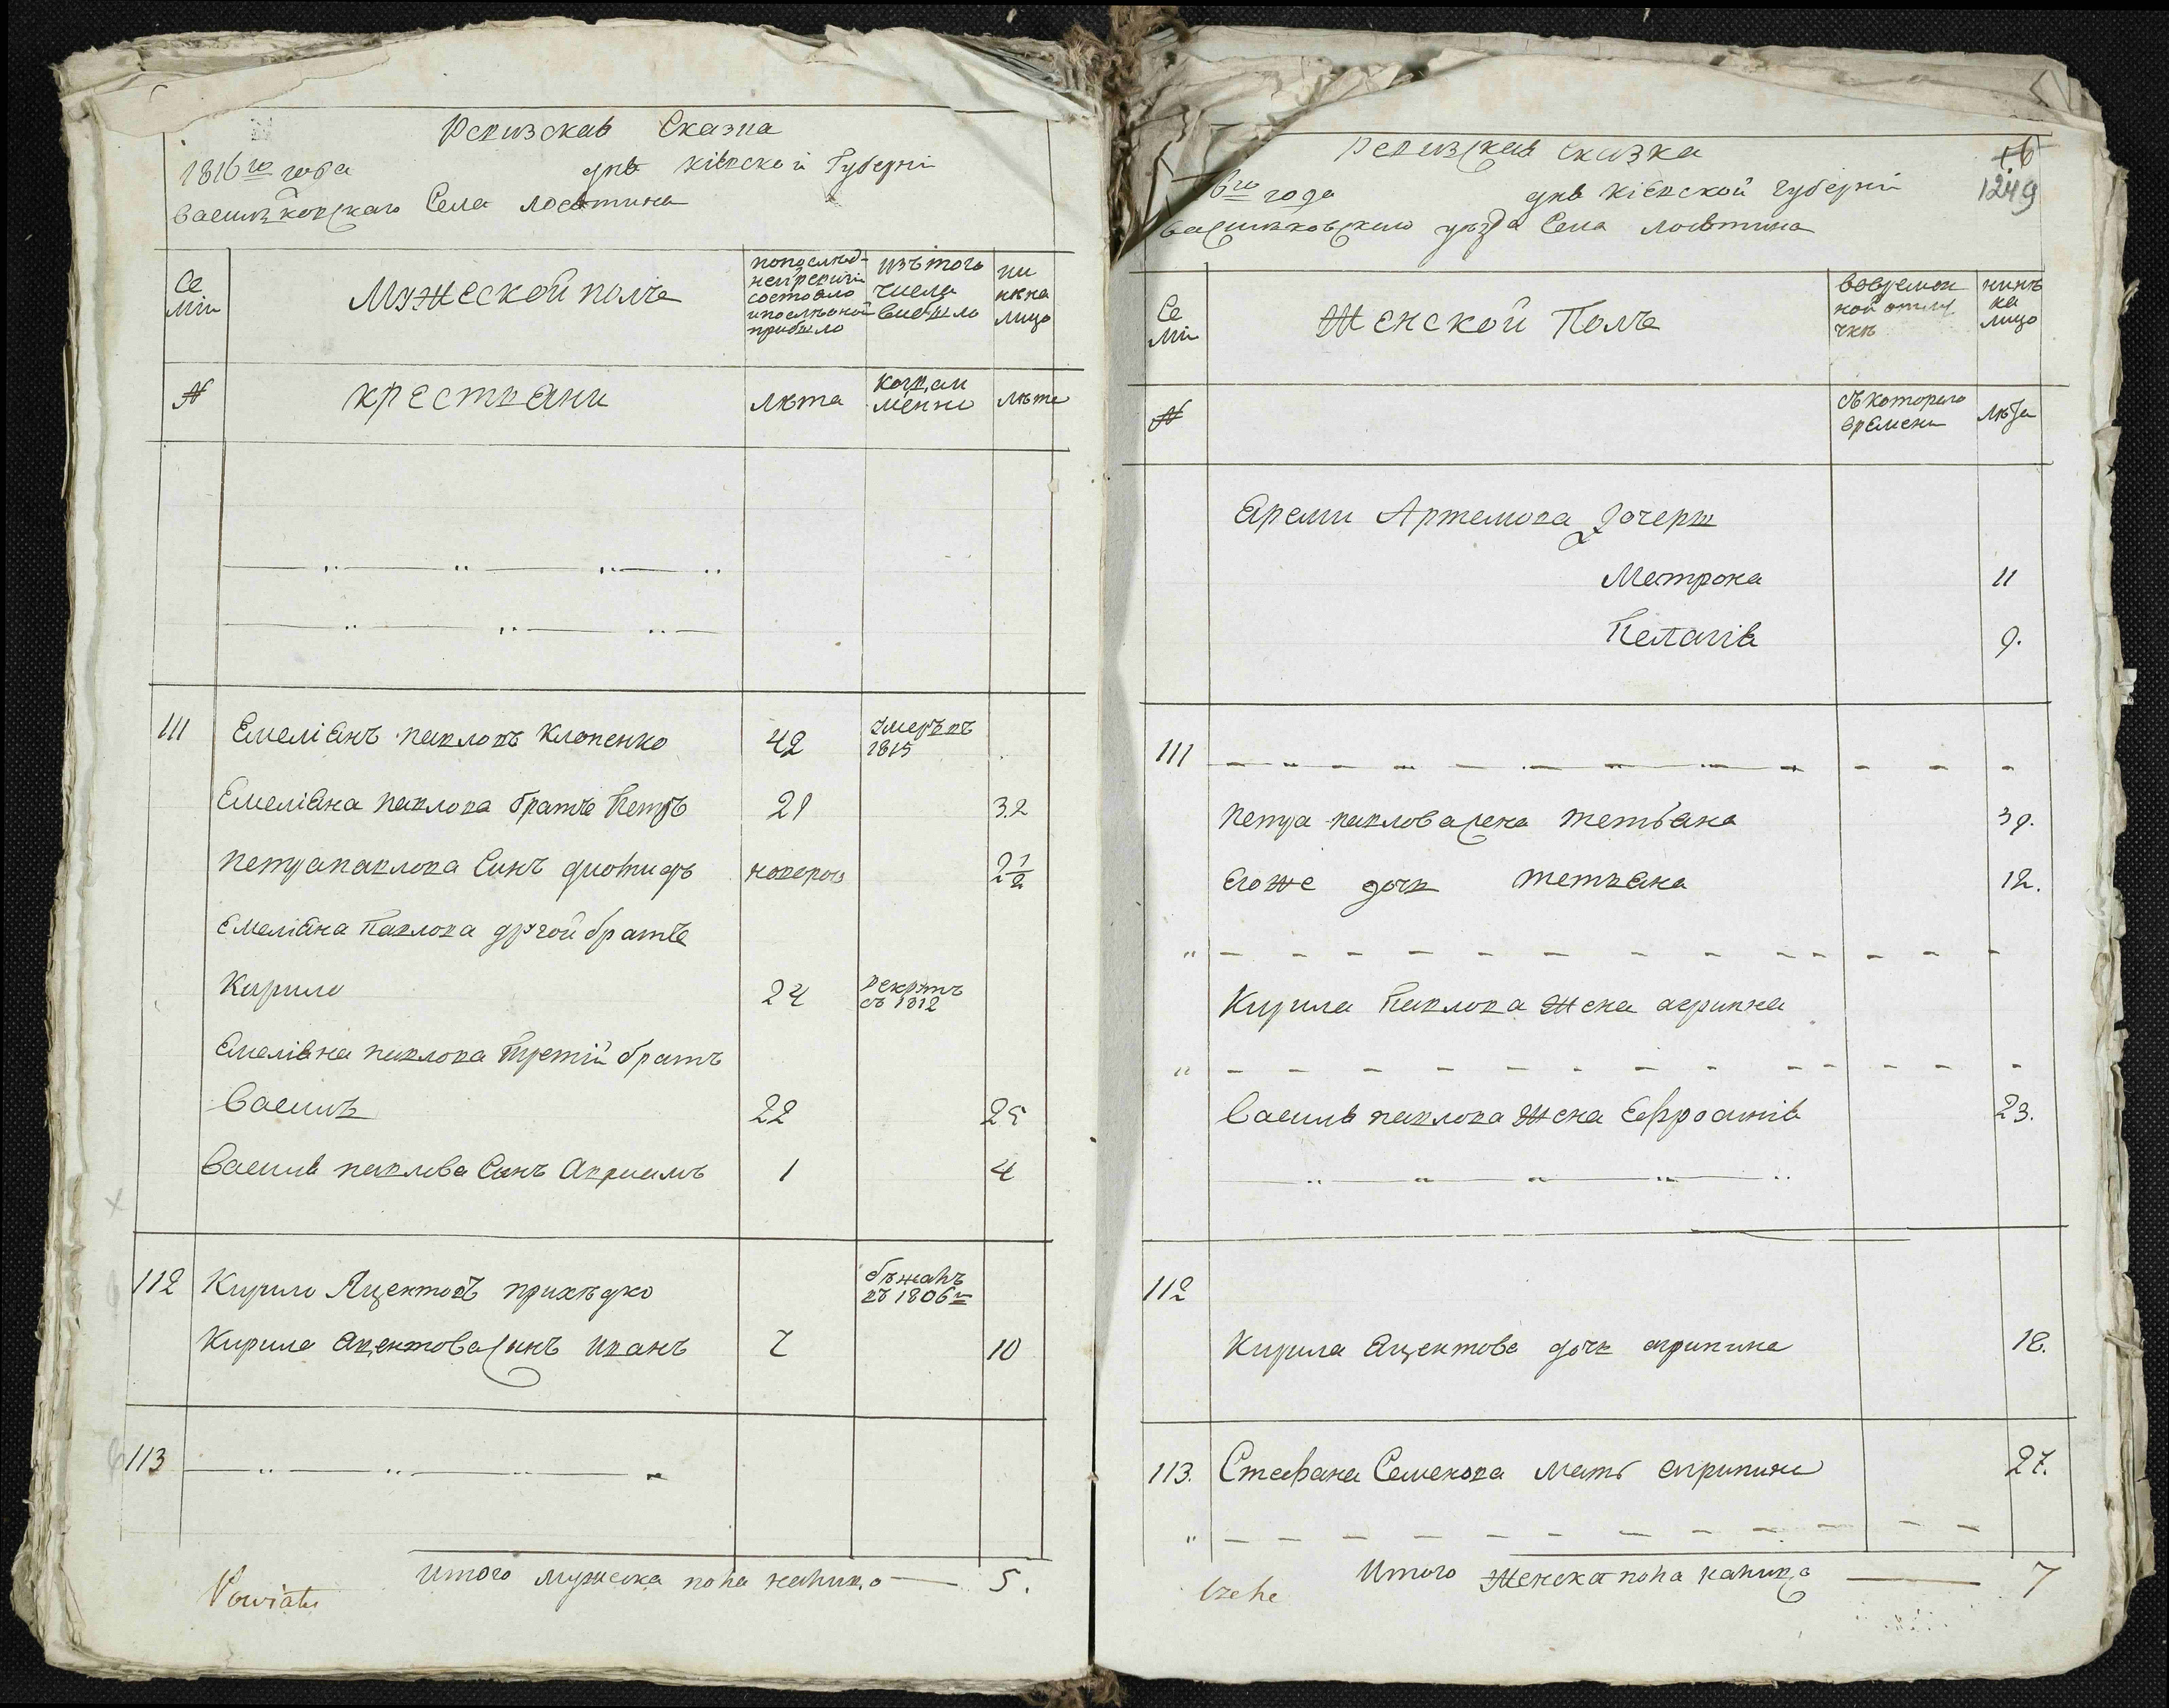 Ревизская Сказка
1816го года дня Кіевской Губерніи
Василковскаго Села Лосятина
Се мьи
Мужеской полъ
по послѣдней ревизіи состояло и послѣ оной прибыло
изъ того числа выбыло
ны нѣ на лицо
№
крестьяни
лѣта
когда имѣнно
лѣта
111 Емеліянъ павловъ Клопенко 42 умеръ въ 1815
Емеліяна павлова братъ Петръ 29 32
Петра павлова Синъ диомидъ новорож 2 1/2
Емеліяна Павлова другой братъ
Кирило 24 рекрутъ съ 1812
Емеліяна павлова Третій братъ
Василь 22 25
Василя павлова Сынъ Авраамъ 1 4
112 Кирило Явцентовъ прихѣдко бѣжалъ въ 1806м
Кирила Явцентова сынъ иванъ 7 10
113
Итого мужеска пола налицо 5.
Powiatu
Ревизская сказка
16
1249
6го года дня Кіевской губерніи
василковскаго уѣзда Села лосятина
Се мьи
Женской Полъ
во временной отлучкѣ
нинѣ на лицо
№
съ котораго времени
лѣта
Яреми Артемова дочеры
Матрона 11
Пелагія 9.
111
Петра павлова жена тетьяна 39.
Егоже дочь тетьяна 12.
Кирила Павлова жена агрипина
Василя павлова жена Ефросинія 23.
112
Кирила Явцентова дочь агрипина 18.
113. Стефана Семенова мать агрипина 27.
Итого женска пола налицо 7